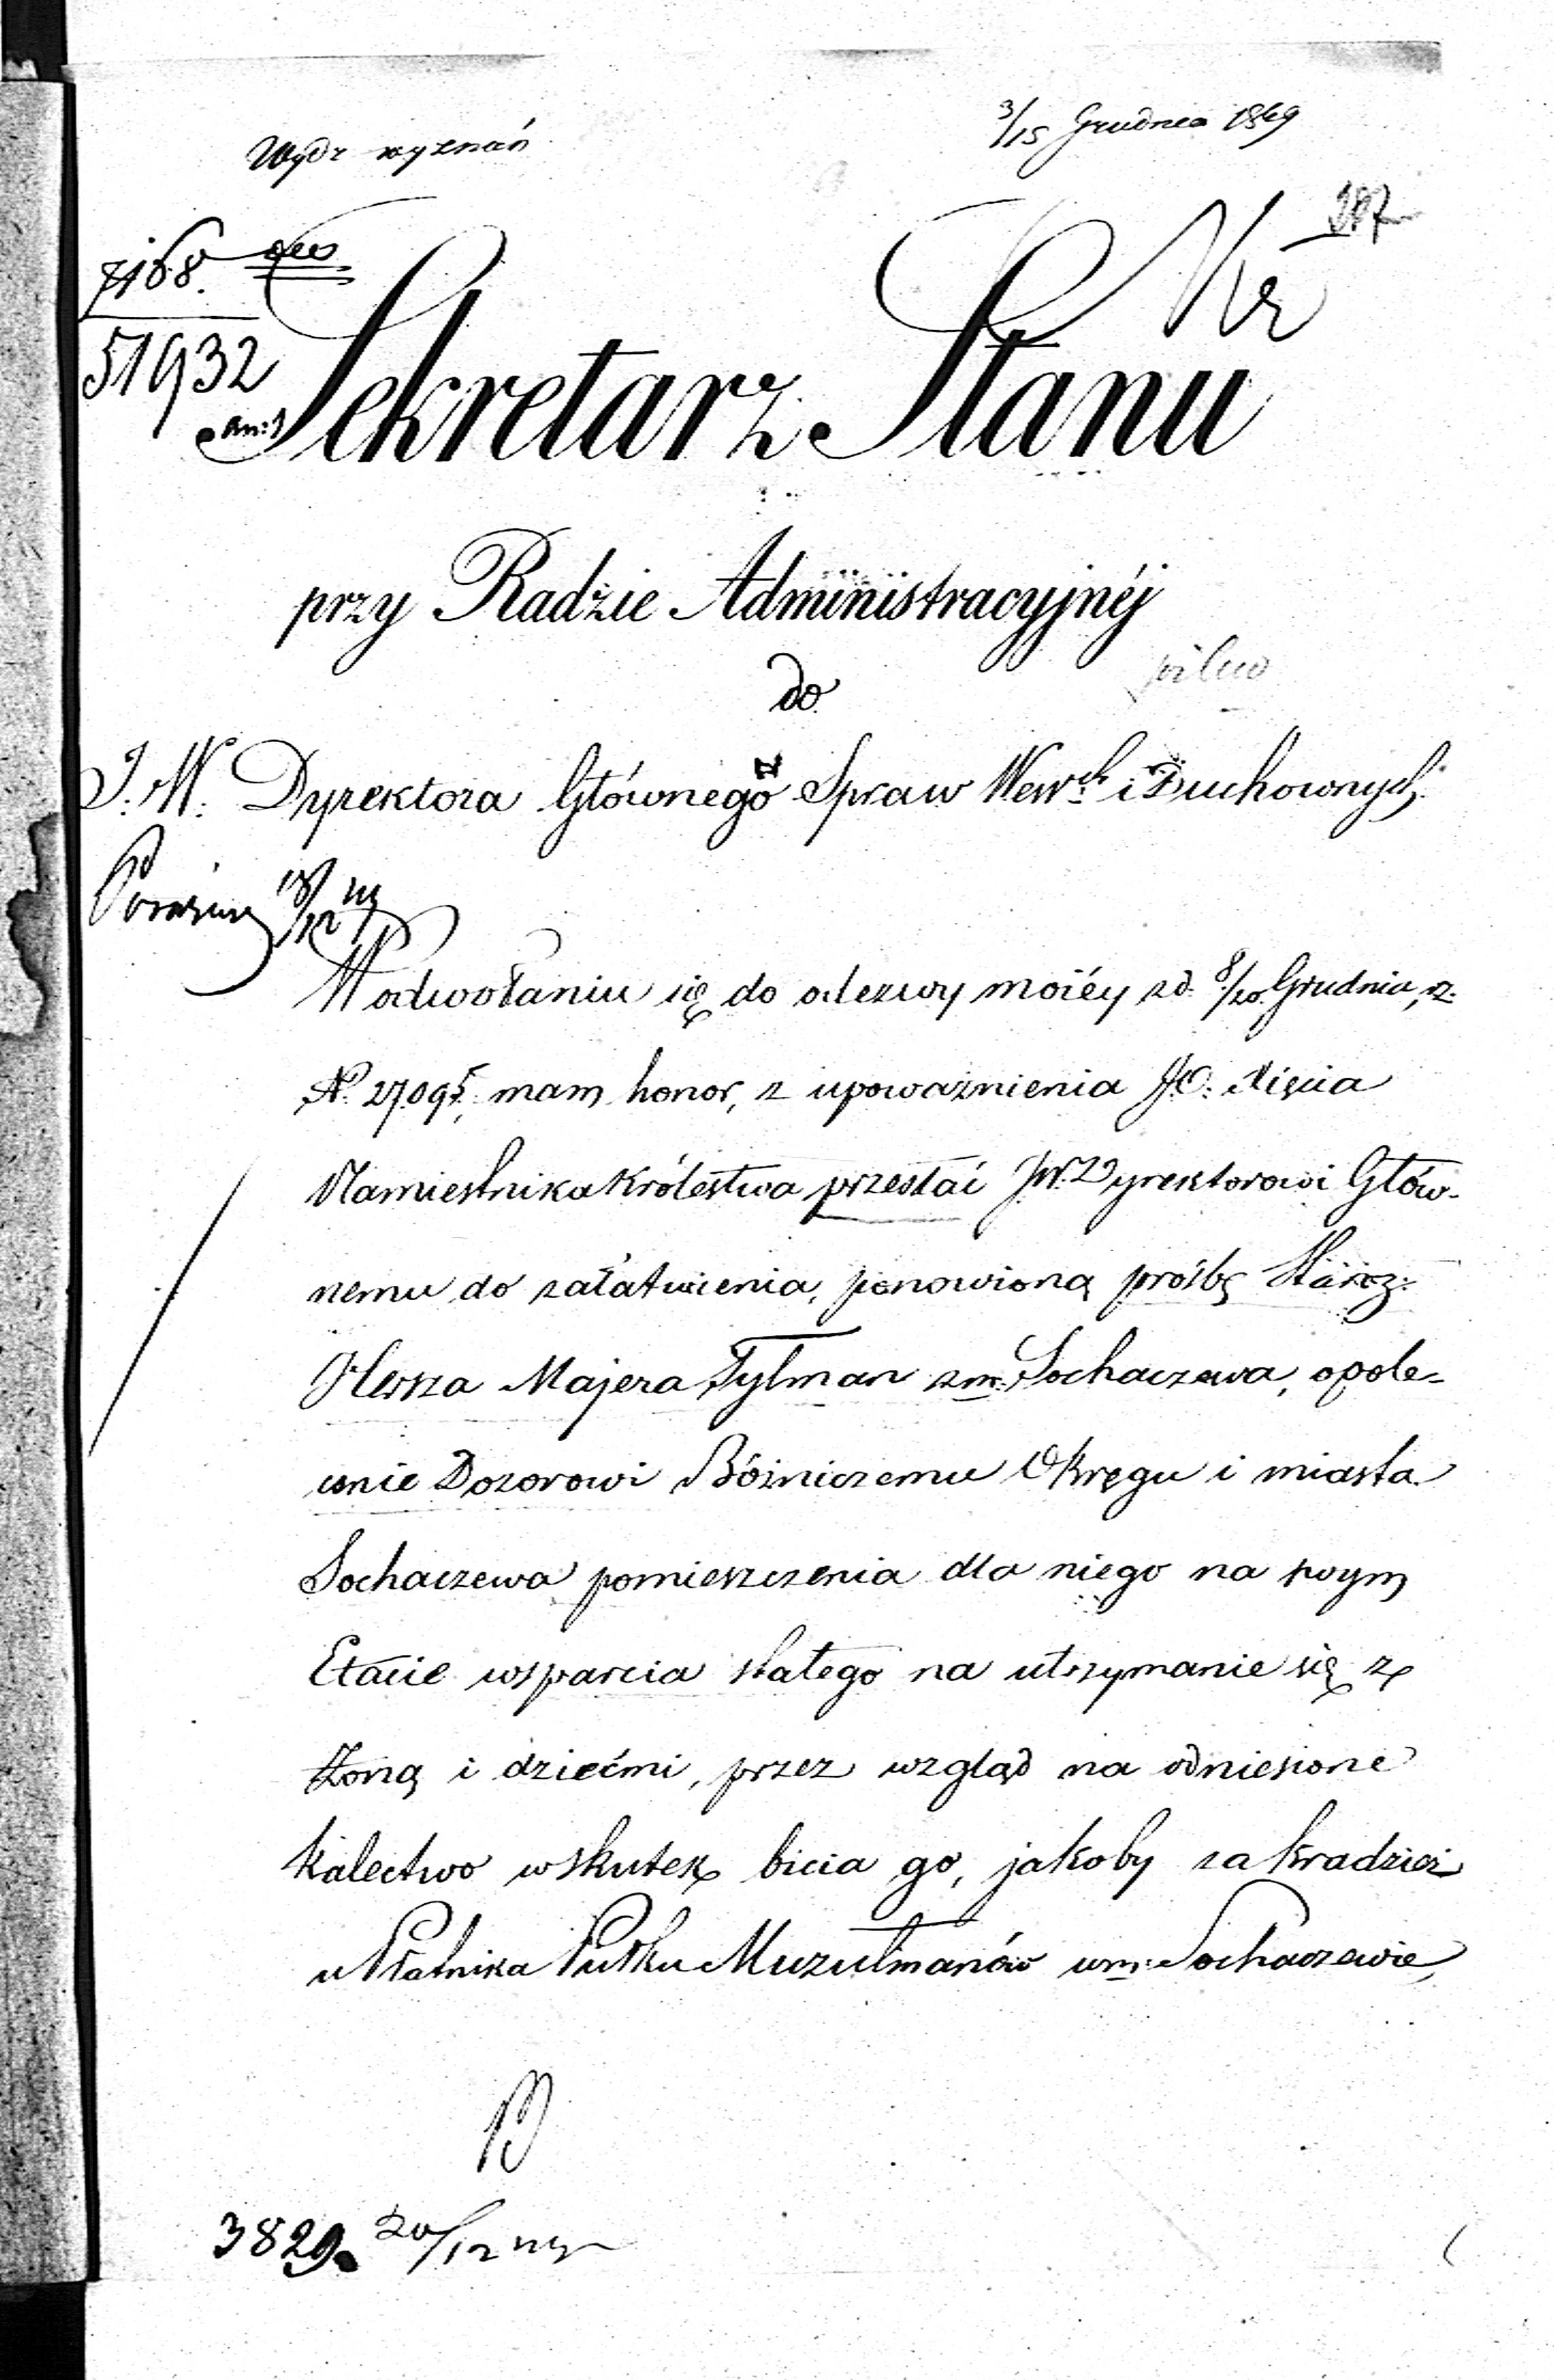 3/15 Grudnia 1849
Wydz wyznań
7168.
51932
Sekretarz Stanu
przy Radzie Administracyjnéj
pilno
do
J. W. Dyrektora Głównego Spraw Wewch i Duchownych
W odwołaniu się do odezwy moiéy zd. 8/20 Grudnia, r.
No 27095, mam honor, z upoważnienia J.O. Xięcia
Namiestnika Królestwa przesłać JW. Dyrektorowi Głów-
nemu do załatwienia, ponowioną prośbę Staroz:
Hersza Majera Tylman z m: Sochaczewa, o pole-
cenie Dozorowi Bóżniczemu Okręgu i miasta
Sochaczewa pomieszczenia dla niego na swym
Etacie wsparcia stałego na utrzymanie się z
Żoną i dziećmi, przez wzgląd na odniesione
kalectwo wskutek bicia go, jakoby za kradzież
u Płatnika Pułku Muzułmanów w m: Sochaczewie,
3829. 20/12